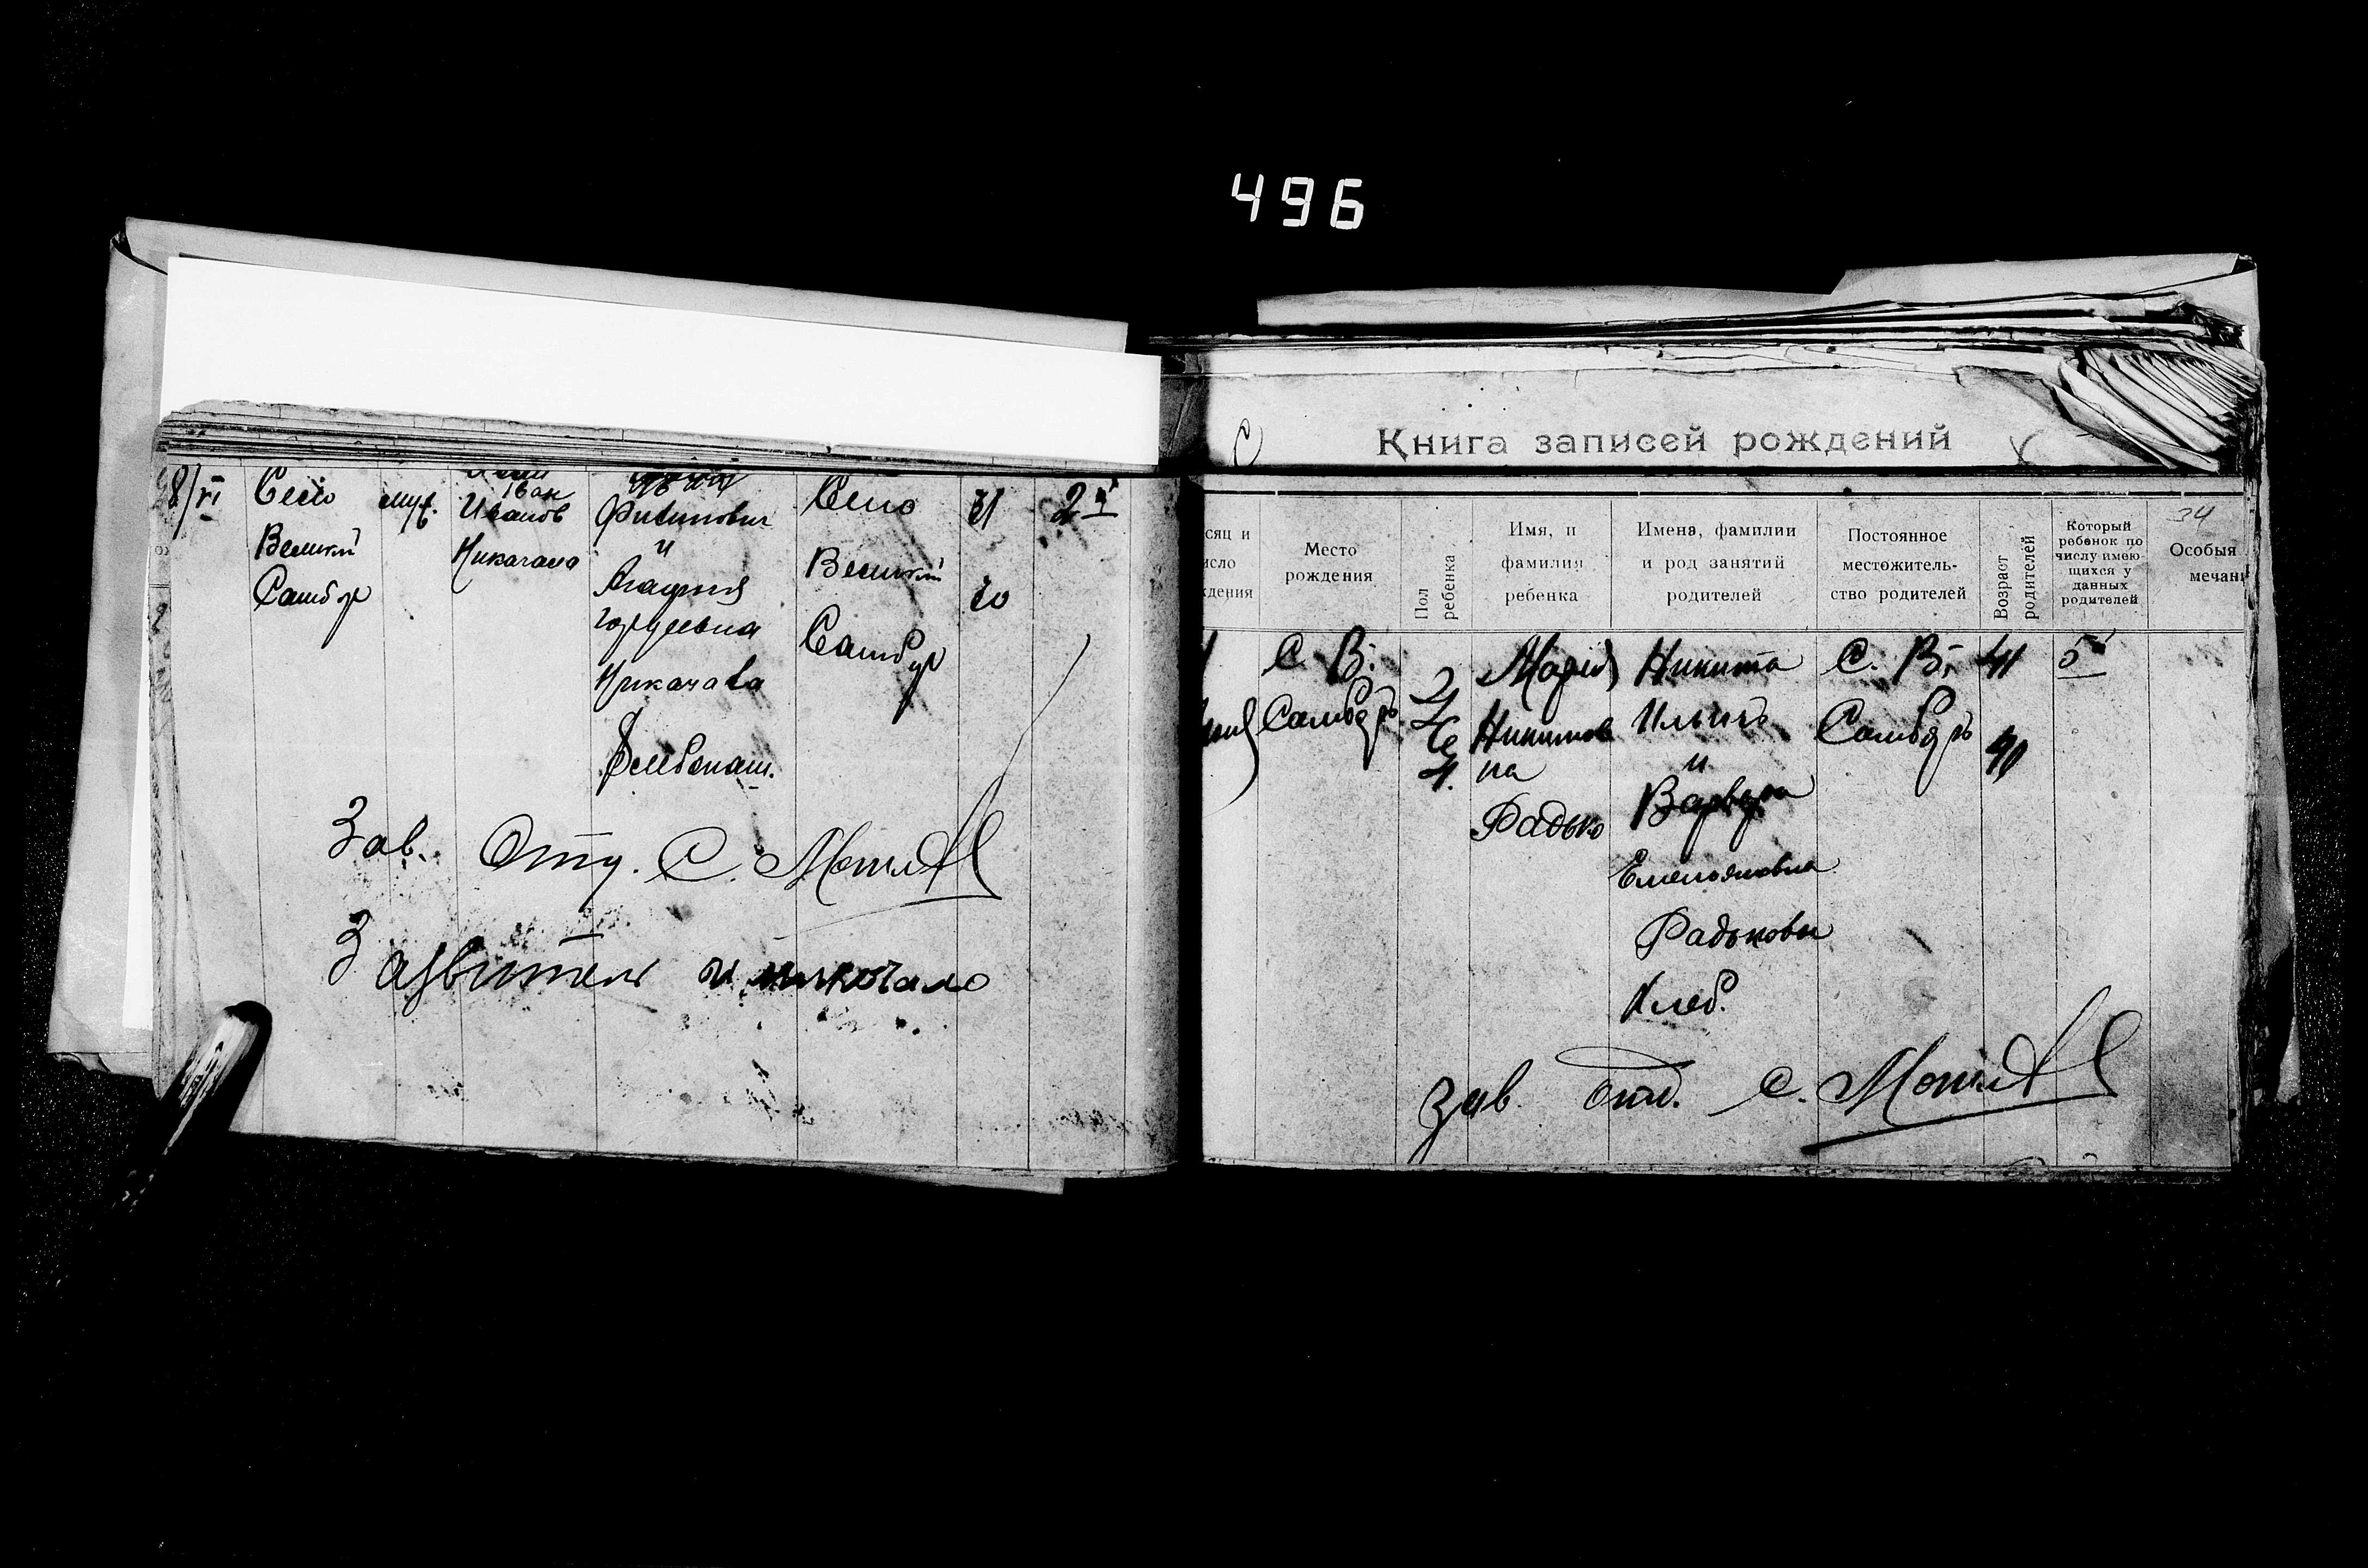 496
8/VI
Село
Великий
Самбур
муж.
Иван
Иванов
Никачала
Филипович
и
Агафия
Гордеевна
Никачала
Хлебопаш.
Село
Великий
Самбур
31
30
2й
Зав. Отд. С.
Заявитель и никочало
Книга записей рождений
34
сяц и
исло
ждения
Место
рождения
Пол
ребенка
Имя, и
фамилия
ребенка
Имена, фамилии
и род занятий
родителей
Постоянное
местожитель-
ство родителей
Возраст
родителей
Который
ребенок по
числу имею-
щихся у
данных
родителей
Особыя
мечан
С. В.
Самбуръ
Марія
Никитов
на
Радько
Никита
Ильичъ
и
Варвара
Емельяновна
Радьковы
Хлеб.
С. В.
Самбуръ
41
40
5й
Зав. отд. С.